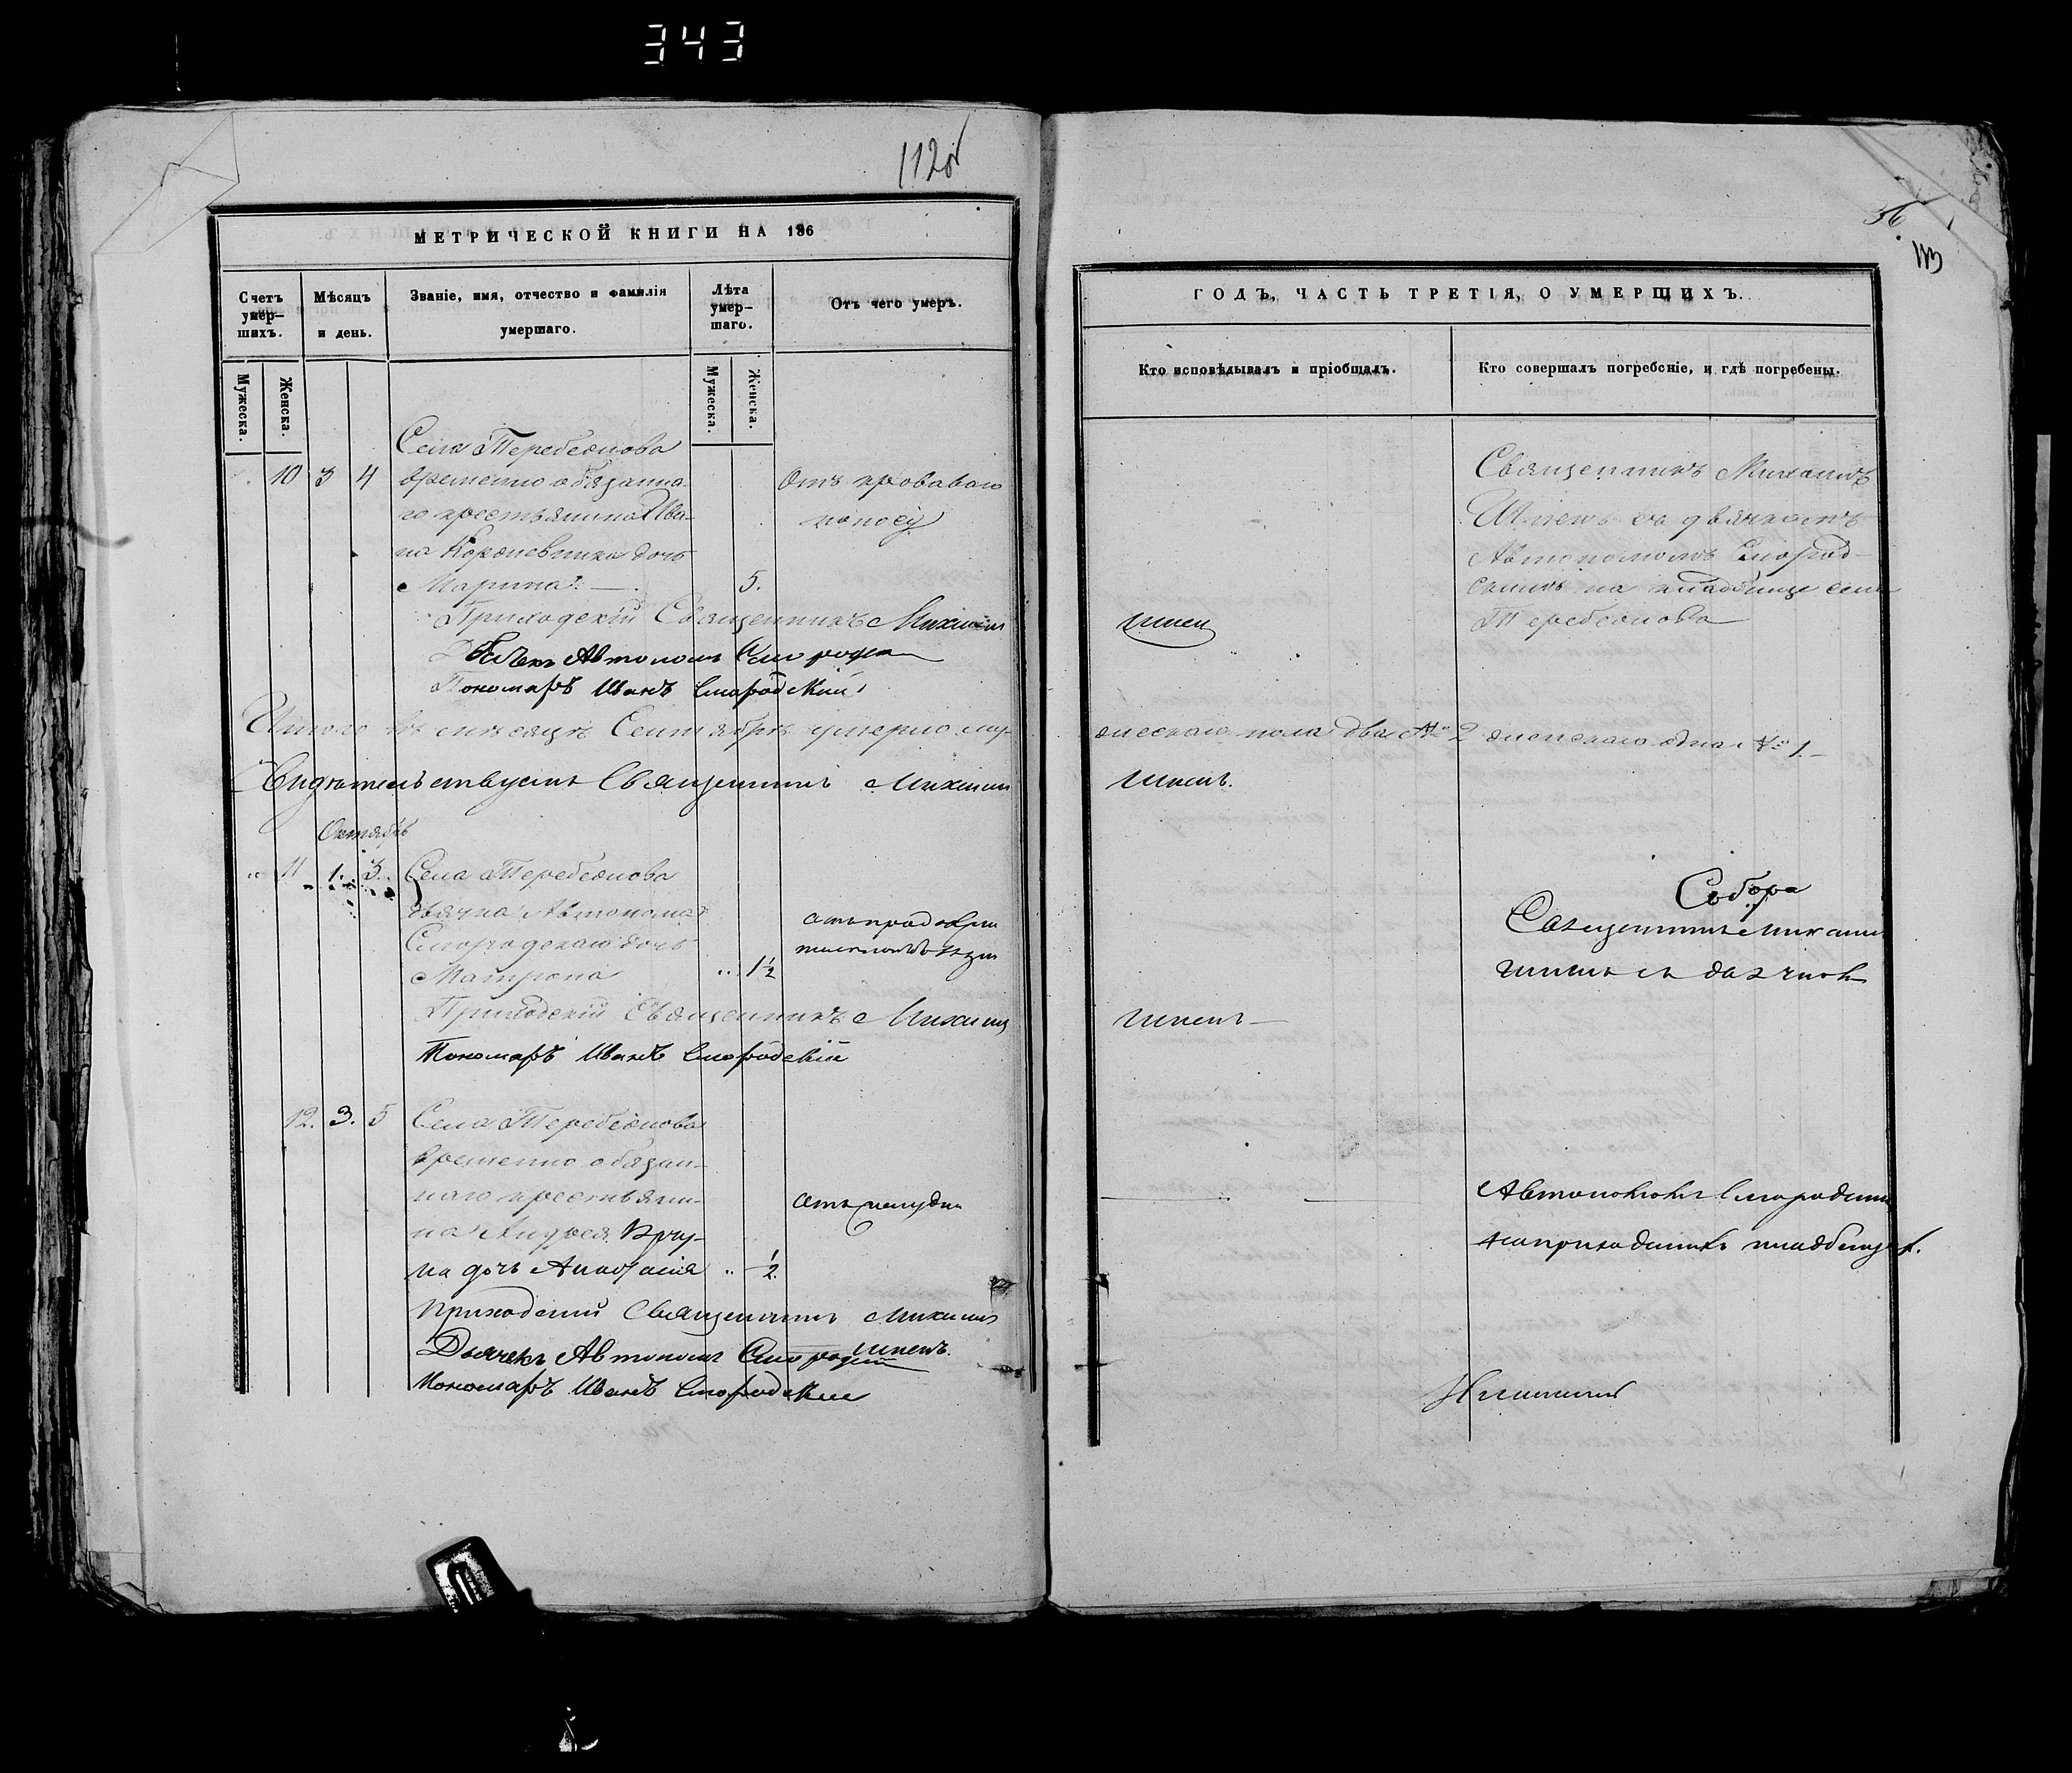 343
112об
МЕТРИЧЕСКОЙ КНИГИ НА 186
Счетъ умер-
шихъ.
Мѣсяцъ
и день.
Званіе, имя, отчество и фамилія
умершаго.
Лѣта
умер-
шаго.
Отъ чего умеръ.
Мужеска.
Женска.
Мужеска.
Женска.
Села Теребежова
10 3 4 временно обязанна- Отъ кроваваго
го крестьянина Ива- поносу
на Корженевника дочь
Марина. — 5.
Приходскій Священникъ Михаилъ
Дьячекъ Автономъ Смородскій
Пономарь Иванъ Смородскій
Итого въ мѣсяцѣ Сентябрѣ умерло му-
Свидѣтельствуетъ Священникъ Михаилъ
Октябрь
" 11 1. 3. Села Теребежова
дьячка Автонома
Смородскаго дочь
Матрона " 1½
Приходскій Священникъ Михаилъ
Пономарь Иванъ Смородскій
12. 3. 5 Села Теребежова
временно обязан-
наго крестьяни-
на Андрея
на дочь Анастасія " ½
Приходскій Священникъ Михаилъ
Шпень.
Дьячекъ Автономъ Смородскій
Пономарь Иванъ Смородскій
36
113
ГОДЪ, ЧАСТЬ ТРЕТІЯ, О УМЕРШИХЪ.
Кто исповѣдывалъ и пріобщалъ.
Кто совершалъ погребеніе, и гдѣ погребены.
Священникъ Михаилъ
Шпень съ дьячкомъ
Автономомъ Смород-
скимъ на кладбище села
Шпень Теребежова
жескаго пола два № 2 женскаго одна № 1.
Шпень.
Собора
Священникъ Михаилъ
Шпень съ дьячкомъ
Шпень
Автономомъ Смородскимъ
на приходскомъ кладбищѣ.